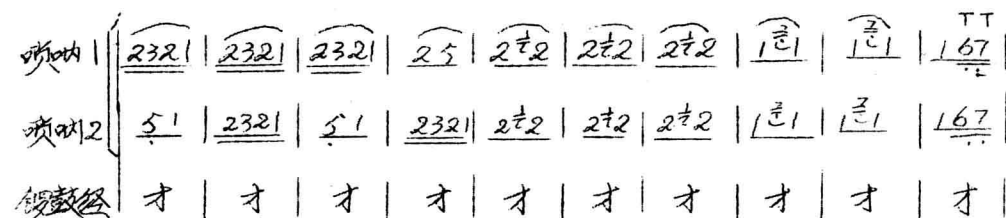 TT
唢呐1 2321 | 2321 | 2321 | 25 | 2 2 | 2 2 | 2 2 | 1 1 | 1 1 | 167
唢呐2 51 | 2321 | 51 | 2321 | 2 2 | 2 2 | 2 2 | 1 1 | 1 1 | 167
锣鼓经 才 | 才 | 才 | 才 | 才 | 才 | 才 | 才 | 才 | 才